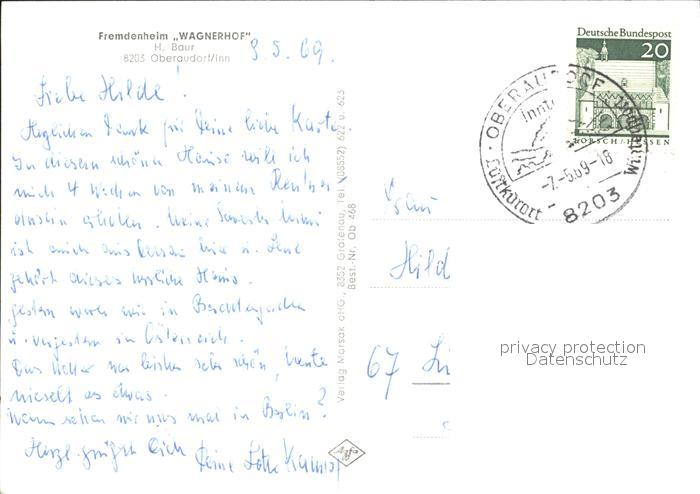 Fremdenheim „WAGNERHOF"
H. Baur
8203 Oberaudorf/Inn
3.5.69.
Liebe Hilde!
Herzlichen Dank für Deine liebe Karte.
In diesem schönen Hause will ich
mich 4 Wochen von meinem
erholen. Meine
ist auch aus hier u.
gehört dieses herrliche Haus.
Gestern waren wir in Berchtesgaden
u. vorgestern in Österreich.
Das Wetter war bisher sehr schön, heute
nieselt es etwas.
Wann sehen wir uns mal in Berlin?
Herzl. grüßt Dich
Deine
Verlag Marsak oHG., 8352 Grafenau, Tel. (08552) 622 u. 623
Best.-Nr. Ob 468
Agfa
Deutsche Bundespost
20
LORSCH/HESSEN
OBERAUDORF
Luftkurort
-7.-5.69-18
8203
Frau
Hild
67
privacy protection
Datenschutz